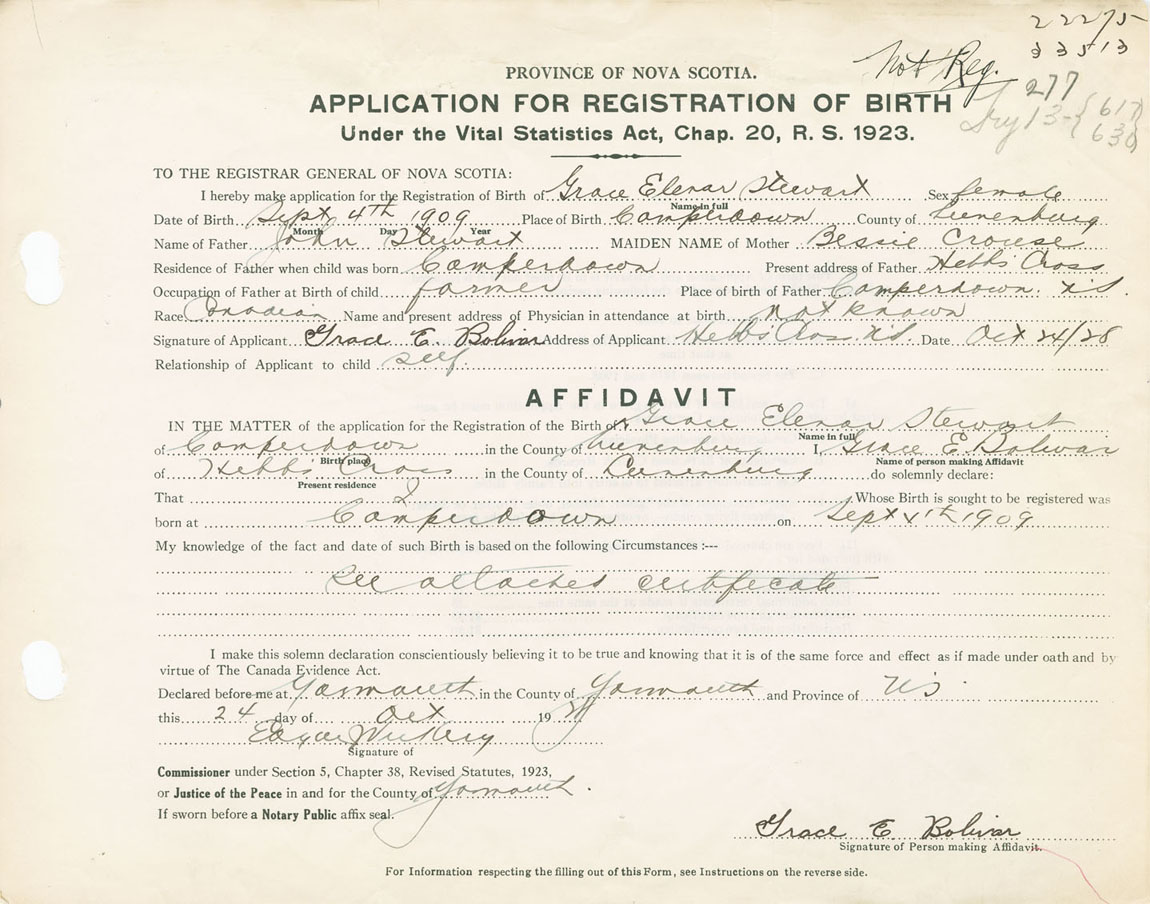 22275
33513
Not Reg.
277
617
630
PROVINCE OF NOVA SCOTIA.
APPLICATION FOR REGISTRATION OF BIRTH
Under the Vital Statistics Act, Chap. 20, R. S. 1923.
TO THE REGISTRAR GENERAL OF NOVA SCOTIA:
I hereby make application for the Registration of Birth of Grace Elenar Stewart Sex female
Name in full
Date of Birth Sept 4th 1909 Place of Birth Camperdown County of Lunenburg
Month Day Year
Name of Father John Stewart MAIDEN NAME of Mother Bessie Crouse
Residence of Father when child was born Camperdown Present address of Father Hebbs Cross
Occupation of Father at Birth of child farmer Place of birth of Father Camperdown. N.S.
Race Canadian Name and present address of Physician in attendance at birth not known
Signature of Applicant Grace E. Bolivar Address of Applicant Hebbs Cross N.S. Date Oct 24/28
Relationship of Applicant to child self.
AFFIDAVIT
IN THE MATTER of the application for the Registration of the Birth of Grace Elenar Stewart
Name in full
of Camperdown in the County of Lunenburg I, Grace E. Bolivar
Birth place Name of person making Affidavit
of Hebbs Cross in the County of Lunenburg do solemnly declare:
Present residence
That I Whose Birth is sought to be registered was
born at Camperdown on Sept 4th 1909
My knowledge of the fact and date of such Birth is based on the following Circumstances :---
See attached certificate
I make this solemn declaration conscientiously believing it to be true and knowing that it is of the same force and effect as if made under oath and by
virtue of The Canada Evidence Act.
Declared before me at Yarmouth in the County of Yarmouth and Province of NS
this 24 day of Oct 19
Edgar
Signature of
Commissioner under Section 5, Chapter 38, Revised Statutes, 1923,
or Justice of the Peace in and for the County of Yarmouth.
If sworn before a Notary Public affix seal.
Grace E. Bolivar
Signature of Person making Affidavit.
For Information respecting the filling out of this Form, see Instructions on the reverse side.